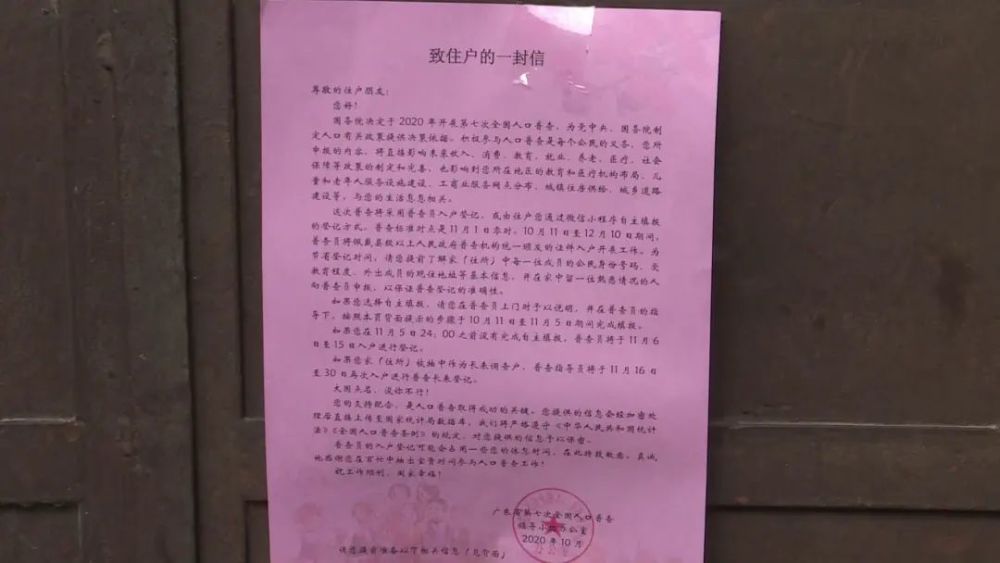 致住户的一封信
尊敬的住户朋友：
您好！
国务院决定于2020年开展第七次全国人口普查，为党中央、国务院制
定人口有关政策提供决策依据。积极参与人口普查是每个公民的义务，您所
申报的内容，将直接影响未来收入、消费、教育、就业、养老、医疗、社会
保障等政策的制定和完善，也影响到您所在地区的教育和医疗机构布局、儿
童和老年人服务设施建设、工商业服务网点分布、城镇住房供给、城乡道路
建设等，与您的生活息息相关。
这次普查将采用普查员入户登记，或由住户您通过微信小程序自主填报
的登记方式。普查标准时点是11月1日零时。10月11日至12月10日期间，
普查员将佩戴县级以上人民政府普查机构统一颁发的证件入户开展工作。为
节省登记时间，请您提前了解家「住所」中每一位成员的公民身份号码、受
教育程度、外出成员的现住地址等基本信息，并在家中留一位熟悉情况的人
向普查员申报，以保证普查登记的准确性。
如果您选择自主填报，请您在普查员上门时予以说明，并在普查员的指
导下，按照本页背面提示的步骤于10月11日至11月5日期间完成填报。
如果您在11月5日24：00之前没有完成自主填报，普查员将于11月6
日至15日入户进行登记。
如果您家「住所」被抽中作为长表调查户，普查指导员将于11月16日
至30日再次入户进行普查长表登记。
大国点名，没你不行！
您的支持配合，是人口普查取得成功的关键。您提供的信息会经加密处
理后直接上传至国家统计局数据库，我们将严格遵守《中华人民共和国统计
法》《全国人口普查条例》的规定，对您提供的信息予以保密。
普查员的入户登记可能会占用一些您的休息时间，在此特致歉意，真诚
地感谢您在百忙中抽出宝贵时间参与人口普查工作！
祝工作顺利，阖家幸福！
广东省第七次全国人口普查
领导小组办公室
2020年10月
请您提前准备以下相关信息「见背面」